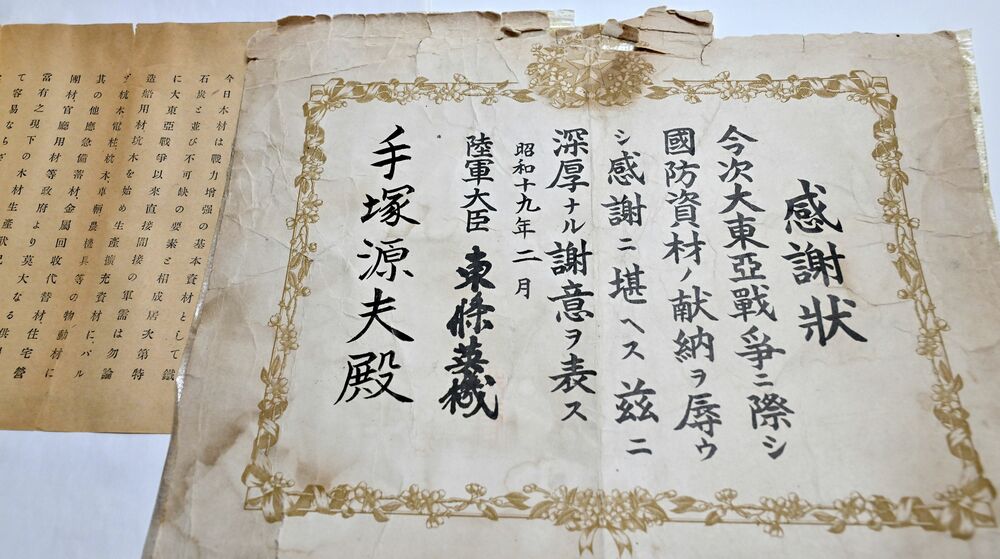 感謝狀
今次大東亞戰爭ニ際シ
國防資材ノ献納ヲ辱ウ
シ感謝ニ堪ヘス茲ニ
深厚ナル謝意ヲ表ス
昭和十九年二月
陸軍大臣 東條英機
手塚源夫殿
今日木材は戰力增强の基本資材として鐵
石炭と並び不可缺の要素と相成居次第特
に大東亞戰爭以來直接間接の軍需は勿論
造船用材坑木を始め生產擴充資材
枕木電柱
其の他應急備蓄材、金屬回收代替材
材、官廳用材等政府より莫大なる
當有之現下の木材生產狀
て容易ならざ